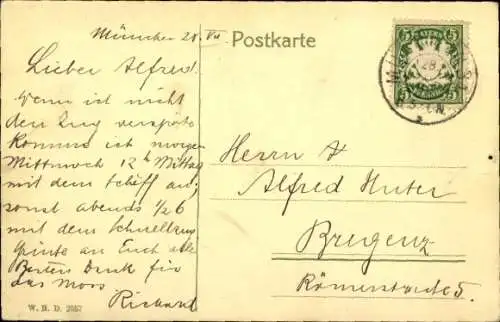 München 28. VII
Postkarte
Lieber Alfred.
Wenn ich nicht
den Zug verspäte
komme ich morgen
Mittwoch 12 h Mittag
mit dem Schiff an,
sonst abends 1/2 6
mit dem Schnellzug
Grüsse an Euch alle
Besten Dank für
das Moos
Richard
W. N. D. 2557
BAYERN
5 5
5 5
Herrn
Alfred Huter
Bregenz
Römerstraße 5.